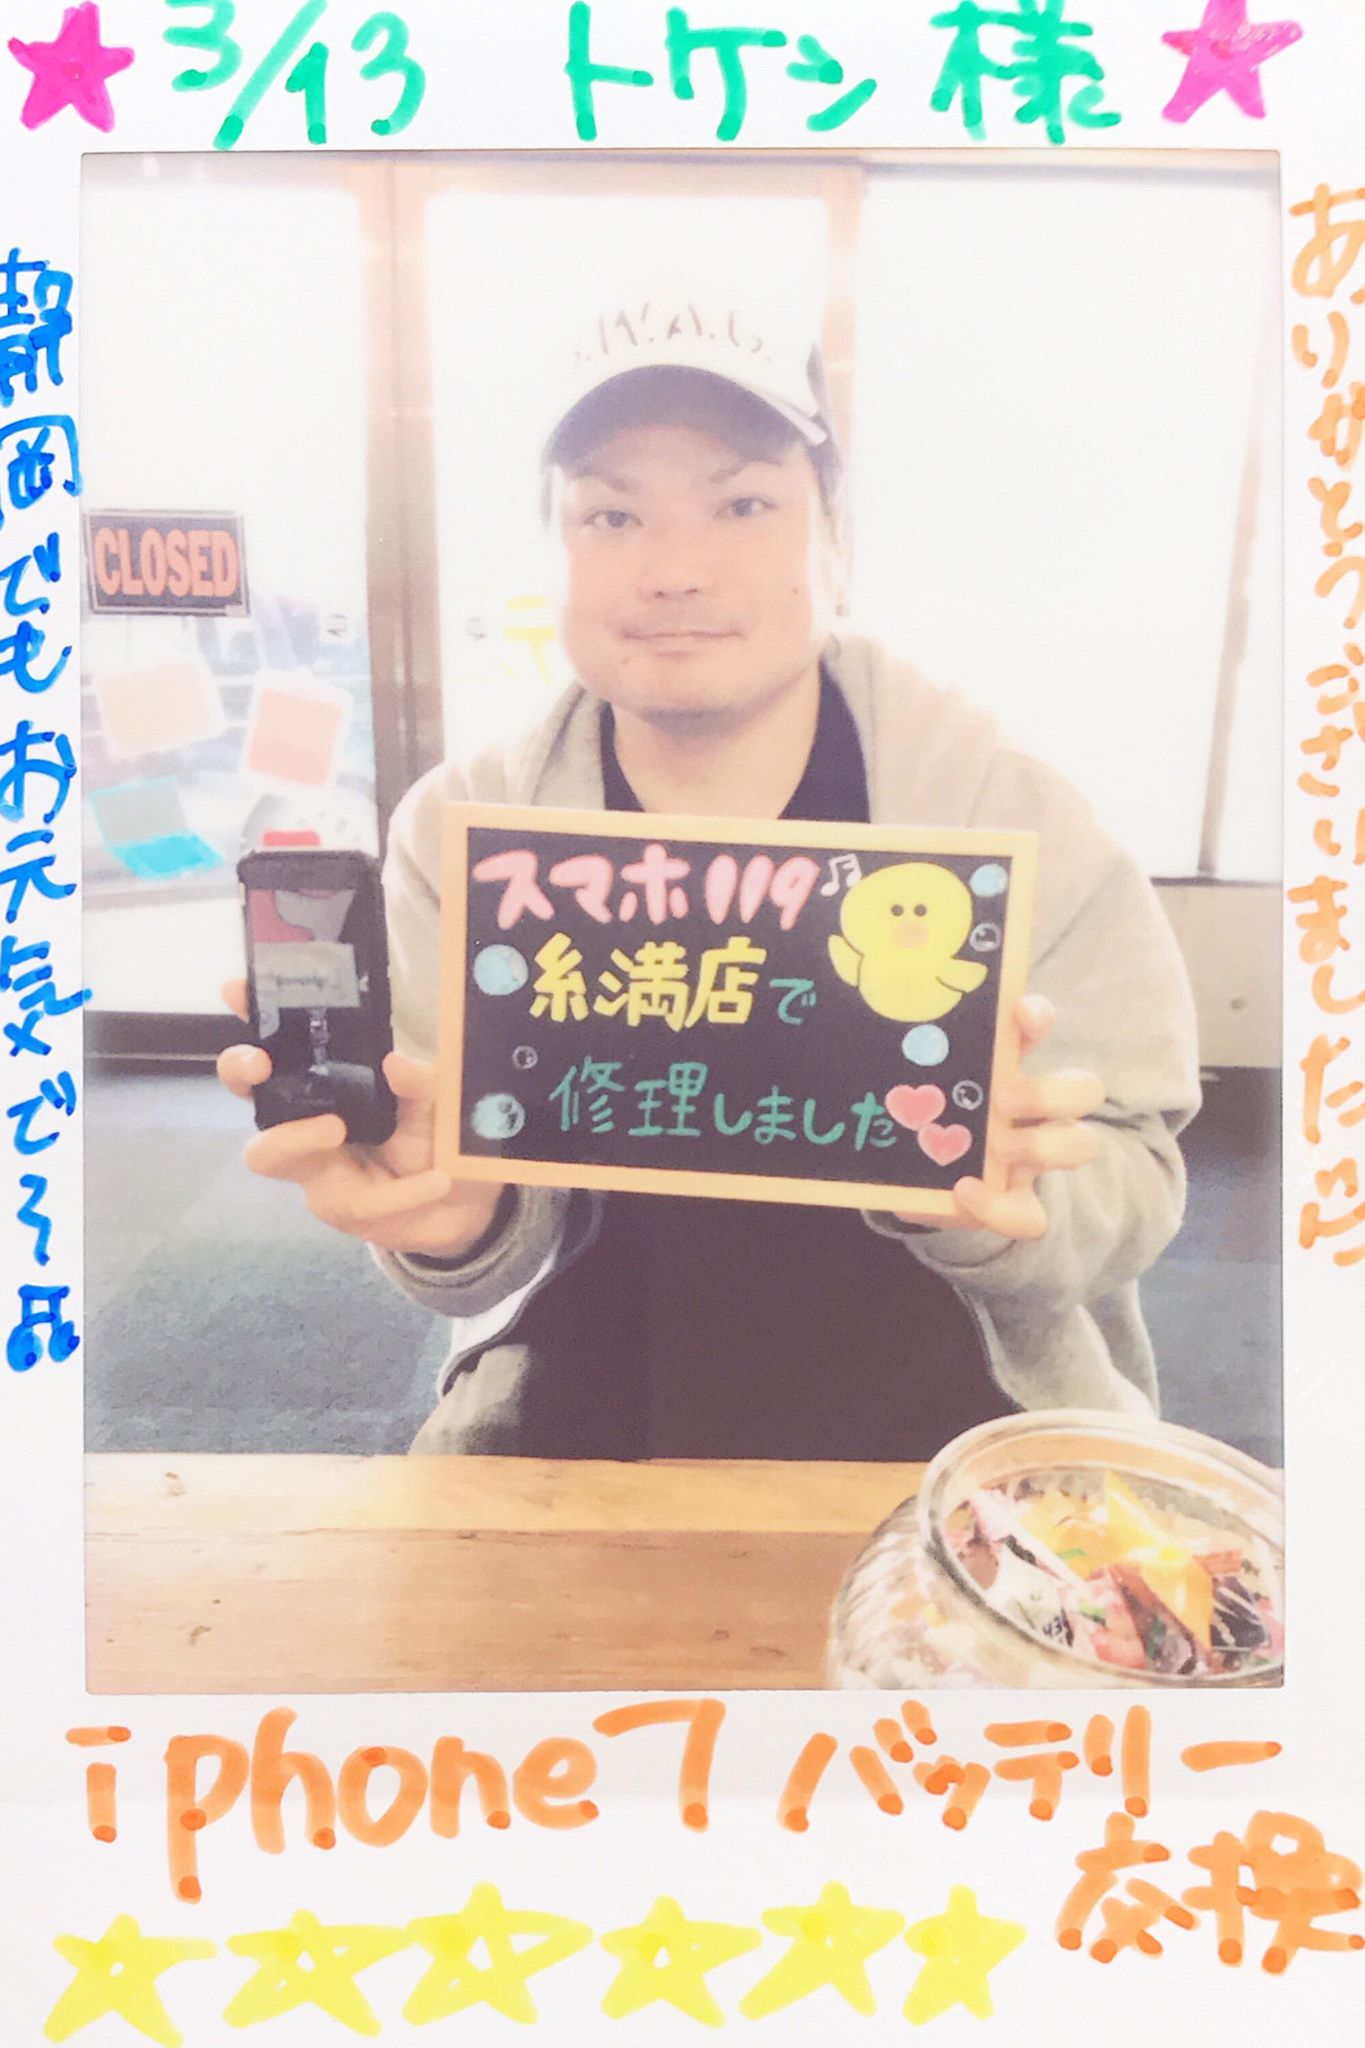 3/13 トケシ様
ありがとうございました!!!
静岡でもお元気で〜♫
CLOSED
スマホ119♬
糸満店で
修理しました
iphone7バッテリー
交換